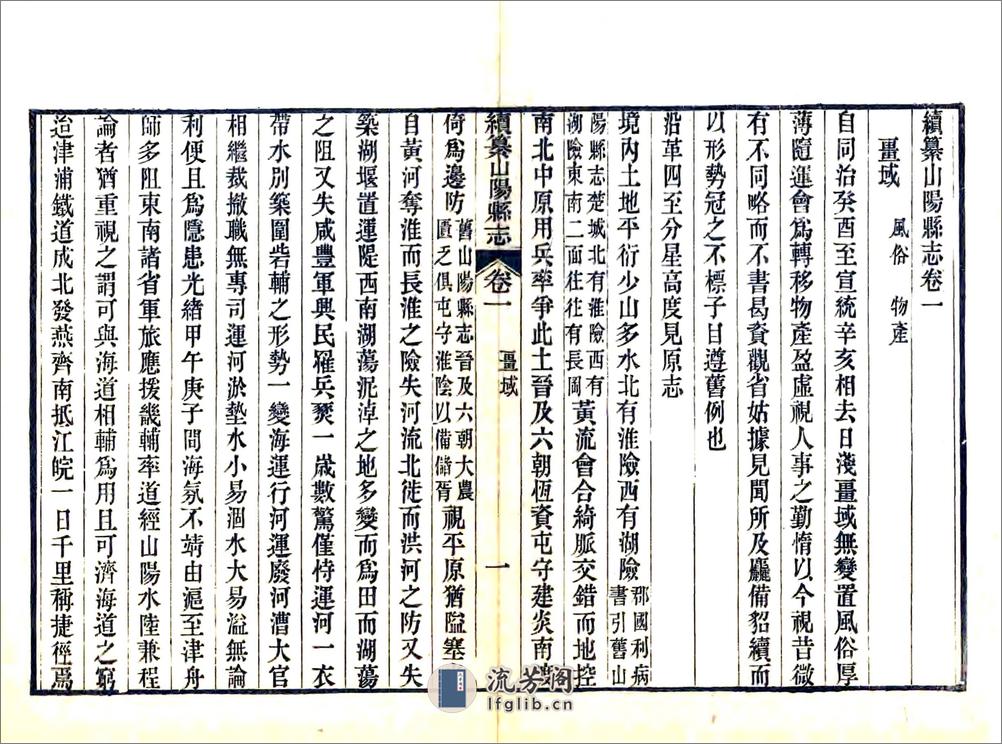 續纂山陽縣志卷一
疆域 風俗 物產
自同治癸酉至宣統辛亥相去日淺疆域無變置風俗厚
薄隨運會為轉移物產盈虛視人事之勤惰以今視昔微
有不同略而不書曷資觀省姑據見聞所及麤備貂續而
以形勢冠之不標子目遵舊例也
沿革四至分星高度見原志
境內土地平衍少山多水北有淮險西有湖險郡國利病書引舊山
陽縣志楚城北有淮險西有湖險東南二面往往有長岡黃流會合綺脈交錯而地控
南北中原用兵率爭此土晉及六朝恆資屯守建炎南渡
續纂山陽縣志 卷一 疆域 一
倚為邊防舊山陽縣志晉及六朝大農匱乏俱屯守淮陰以備儲胥視平原猶隘塞
自黃河奪淮而長淮之險失河流北徙而洪河之防又失
築湖堰置運隄西南湖蕩泥淖之地多變而為田而湖蕩
之阻又失咸豐軍興民罹兵燹一歲數驚僅恃運河一衣
帶水別築圍砦輔之形勢一變海運行河運廢河漕大官
相繼裁撤職無專司運河淤墊水小易涸水大易溢無論
利便且為隱患光緒甲午庚子間海氛不靖由滬至津舟
師多阻東南諸省軍旅應援畿輔率道經山陽水陸兼程
論者猶重視之謂可與海道相輔為用且可濟海道之窮
迨津浦鐵道成北發燕齊南抵江皖一日千里稱捷徑焉
流芳阁
lfglib.cn